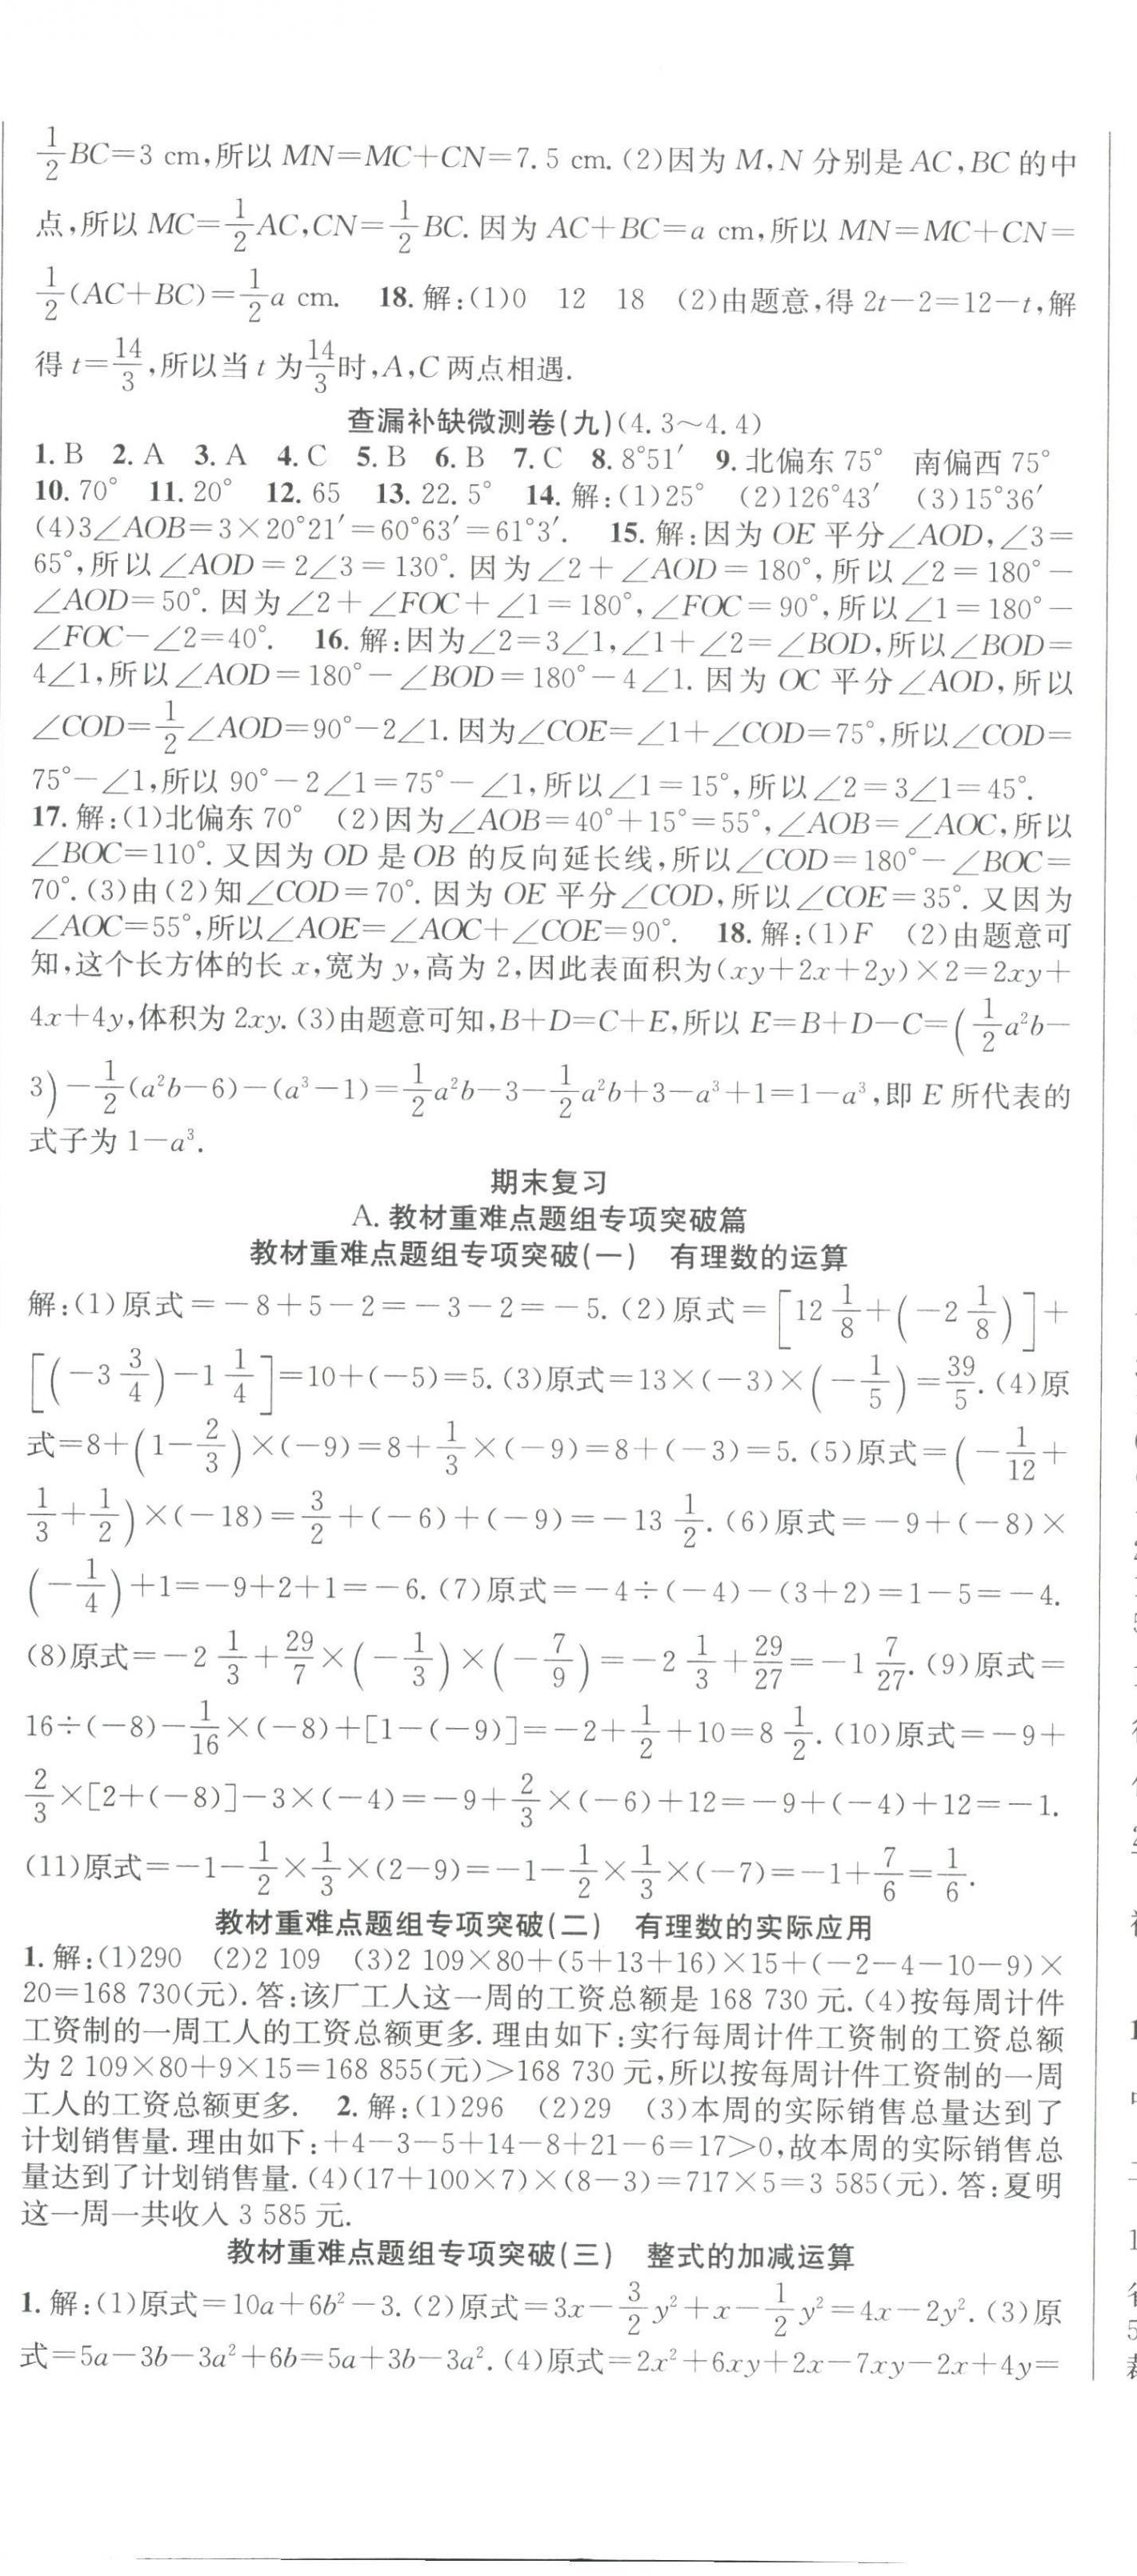 $\frac{1}{2}$BC=3 cm,所以 MN=MC+CN=7.5 cm.(2)因为 M,N 分别是 AC,BC 的中
点,所以 MC=$\frac{1}{2}$AC,CN=$\frac{1}{2}$BC.因为 AC+BC=a cm,所以 MN=MC+CN=
$\frac{1}{2}$(AC+BC)=$\frac{1}{2}$a cm. 18.解:(1)0 12 18 (2)由题意,得 2t-2=12-t,解
得 t=$\frac{14}{3}$,所以当 t 为$\frac{14}{3}$时,A,C 两点相遇.
查漏补缺微测卷(九)(4.3~4.4)
1.B 2.A 3.A 4.C 5.B 6.B 7.C 8.8°51′ 9.北偏东 75° 南偏西 75°
10.70° 11.20° 12.65 13.22.5° 14.解:(1)25° (2)126°43′ (3)15°36′
(4)3∠AOB=3×20°21′=60°63′=61°3′. 15.解:因为 OE 平分∠AOD,∠3=
65°,所以∠AOD=2∠3=130°.因为∠2+∠AOD=180°,所以∠2=180°-
∠AOD=50°.因为∠2+∠FOC+∠1=180°,∠FOC=90°,所以∠1=180°-
∠FOC-∠2=40°. 16.解:因为∠2=3∠1,∠1+∠2=∠BOD,所以∠BOD=
4∠1,所以∠AOD=180°-∠BOD=180°-4∠1.因为 OC 平分∠AOD,所以
∠COD=$\frac{1}{2}$∠AOD=90°-2∠1.因为∠COE=∠1+∠COD=75°,所以∠COD=
75°-∠1,所以 90°-2∠1=75°-∠1,所以∠1=15°,所以∠2=3∠1=45°.
17.解:(1)北偏东 70° (2)因为∠AOB=40°+15°=55°,∠AOB=∠AOC,所以
∠BOC=110°.又因为 OD 是 OB 的反向延长线,所以∠COD=180°-∠BOC=
70°.(3)由(2)知∠COD=70°.因为 OE 平分∠COD,所以∠COE=35°.又因为
∠AOC=55°,所以∠AOE=∠AOC+∠COE=90°. 18.解:(1)F (2)由题意可
知,这个长方体的长 x,宽为 y,高为 2,因此表面积为(xy+2x+2y)×2=2xy+
4x+4y,体积为 2xy.(3)由题意可知,B+D=C+E,所以 E=B+D-C=($\frac{1}{2}$a²b-
3)-$\frac{1}{2}$(a²b-6)-(a³-1)=$\frac{1}{2}$a²b-3-$\frac{1}{2}$a²b+3-a³+1=1-a³,即 E 所代表的
式子为 1-a³.
期末复习
A.教材重难点题组专项突破篇
教材重难点题组专项突破(一) 有理数的运算
解:(1)原式=-8+5-2=-3-2=-5.(2)原式=[12$\frac{1}{8}$+(-2$\frac{1}{8}$)]+
[(-3$\frac{3}{4}$)-1$\frac{1}{4}$]=10+(-5)=5.(3)原式=13×(-3)×(-$\frac{1}{5}$)=$\frac{39}{5}$.(4)原
式=8+(1-$\frac{2}{3}$)×(-9)=8+$\frac{1}{3}$×(-9)=8+(-3)=5.(5)原式=(-$\frac{1}{12}$+
$\frac{1}{3}$+$\frac{1}{2}$)×(-18)=$\frac{3}{2}$+(-6)+(-9)=-13$\frac{1}{2}$.(6)原式=-9+(-8)×
(-$\frac{1}{4}$)+1=-9+2+1=-6.(7)原式=-4÷(-4)-(3+2)=1-5=-4.
(8)原式=-2$\frac{1}{3}$+$\frac{29}{7}$×(-$\frac{1}{3}$)×(-$\frac{7}{9}$)=-2$\frac{1}{3}$+$\frac{29}{27}$=-1$\frac{7}{27}$.(9)原式=
16÷(-8)-$\frac{1}{16}$×(-8)+[1-(-9)]=-2+$\frac{1}{2}$+10=8$\frac{1}{2}$.(10)原式=-9+
$\frac{2}{3}$×[2+(-8)]-3×(-4)=-9+$\frac{2}{3}$×(-6)+12=-9+(-4)+12=-1.
(11)原式=-1-$\frac{1}{2}$×$\frac{1}{3}$×(2-9)=-1-$\frac{1}{2}$×$\frac{1}{3}$×(-7)=-1+$\frac{7}{6}$=$\frac{1}{6}$.
教材重难点题组专项突破(二) 有理数的实际应用
1.解:(1)290 (2)2 109 (3)2 109×80+(5+13+16)×15+(-2-4-10-9)×
20=168 730(元).答:该厂工人这一周的工资总额是 168 730 元.(4)按每周计件
工资制的一周工人的工资总额更多.理由如下:实行每周计件工资制的工资总额
为 2 109×80+9×15=168 855(元)>168 730 元,所以按每周计件工资制的一周
工人的工资总额更多. 2.解:(1)296 (2)29 (3)本周的实际销售总量达到了
计划销售量.理由如下:+4-3-5+14-8+21-6=17>0,故本周的实际销售总
量达到了计划销售量.(4)(17+100×7)×(8-3)=717×5=3 585(元).答:夏明
这一周一共收入 3 585 元.
教材重难点题组专项突破(三) 整式的加减运算
1.解:(1)原式=10a+6b²-3.(2)原式=3x-$\frac{3}{2}$y²+x-$\frac{1}{2}$y²=4x-2y².(3)原
式=5a-3b-3a²+6b=5a+3b-3a².(4)原式=2x²+6xy+2x-7xy-2x+4y=